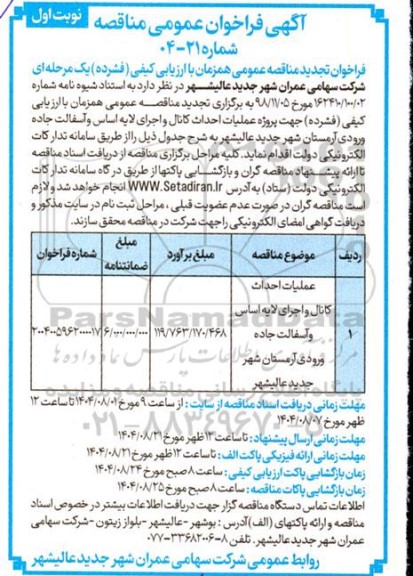 نوبت اول
آگهی فراخوان عمومی مناقصه
شماره ۲۱-۰۴
فراخوان تجدید مناقصه عمومی همزمان با ارزیابی کیفی (فشرده) یک مرحله ای
شرکت سهامی عمران شهر جدید عالیشهر در نظر دارد به استناد شیوه نامه شماره
۱۶۲۴۱۰/۱۰۰/۰۲ مورخ ۹۸/۱۱/۰۵ به برگزاری تجدید مناقصه عمومی همزمان با ارزیابی
کیفی (فشرده) جهت پروژه عملیات احداث کانال و اجرای لایه اساس و آسفالت جاده
ورودی آرمستان شهر جدید عالیشهر به شرح جدول ذیل را از طریق سامانه تدارکات
الکترونیکی دولت اقدام نماید. کلیه مراحل برگزاری مناقصه از دریافت اسناد مناقصه
تا ارائه پیشنهاد مناقصه گران و بازگشایی پاکتها از طریق درگاه سامانه تدارکات
الکترونیکی دولت (ستاد) به آدرس WWW.Setadiran.ir انجام خواهد شد و لازم
است مناقصه گران در صورت عدم عضویت قبلی، مراحل ثبت نام در سایت مذکور و
دریافت گواهی امضای الکترونیکی را جهت شرکت در مناقصه محقق سازند.
ردیف موضوع مناقصه مبلغ برآورد مبلغ ضمانتنامه شماره فراخوان
۱ عملیات احداث کانال و اجرای لایه اساس و آسفالت جاده ورودی آرمستان شهر جدید عالیشهر ۱۱۹/۷۶۳/۱۷۰/۴۶۸ ۶/۰۰۰/۰۰۰/۰۰۰ ۲۰۰۴۰۰۵۹۶۲۰۰۰۰۱۷
مهلت زمانی دریافت اسناد مناقصه از سایت: از ساعت ۹ مورخ ۱۴۰۴/۰۸/۰۱ تا ساعت ۱۲
ظهر مورخ ۱۴۰۴/۰۸/۰۷
مهلت زمانی ارسال پیشنهاد: تا ساعت ۱۳ ظهر مورخ ۱۴۰۴/۰۸/۲۱
مهلت زمانی ارائه فیزیکی پاکت الف: تا ساعت ۱۲ ظهر مورخ ۱۴۰۴/۰۸/۲۱
زمان بازگشایی پاکت ارزیابی کیفی: ساعت ۸ صبح مورخ ۱۴۰۴/۰۸/۲۴
زمان بازگشایی پاکات مناقصه: ساعت ۸ صبح مورخ ۱۴۰۴/۰۸/۲۵
اطلاعات تماس دستگاه مناقصه گزار جهت دریافت اطلاعات بیشتر در خصوص اسناد
مناقصه و ارائه پاکتهای (الف) آدرس: بوشهر - عالیشهر - بلوار زیتون - شرکت سهامی
عمران شهر جدید عالیشهر. تلفن ۸-۳۳۶۸۲۰۰۶-۰۷۷
روابط عمومی شرکت سهامی عمران شهر جدید عالیشهر
ParsNamadData
۰۲۱-۸۸۳۴۹۶۷۰-۵